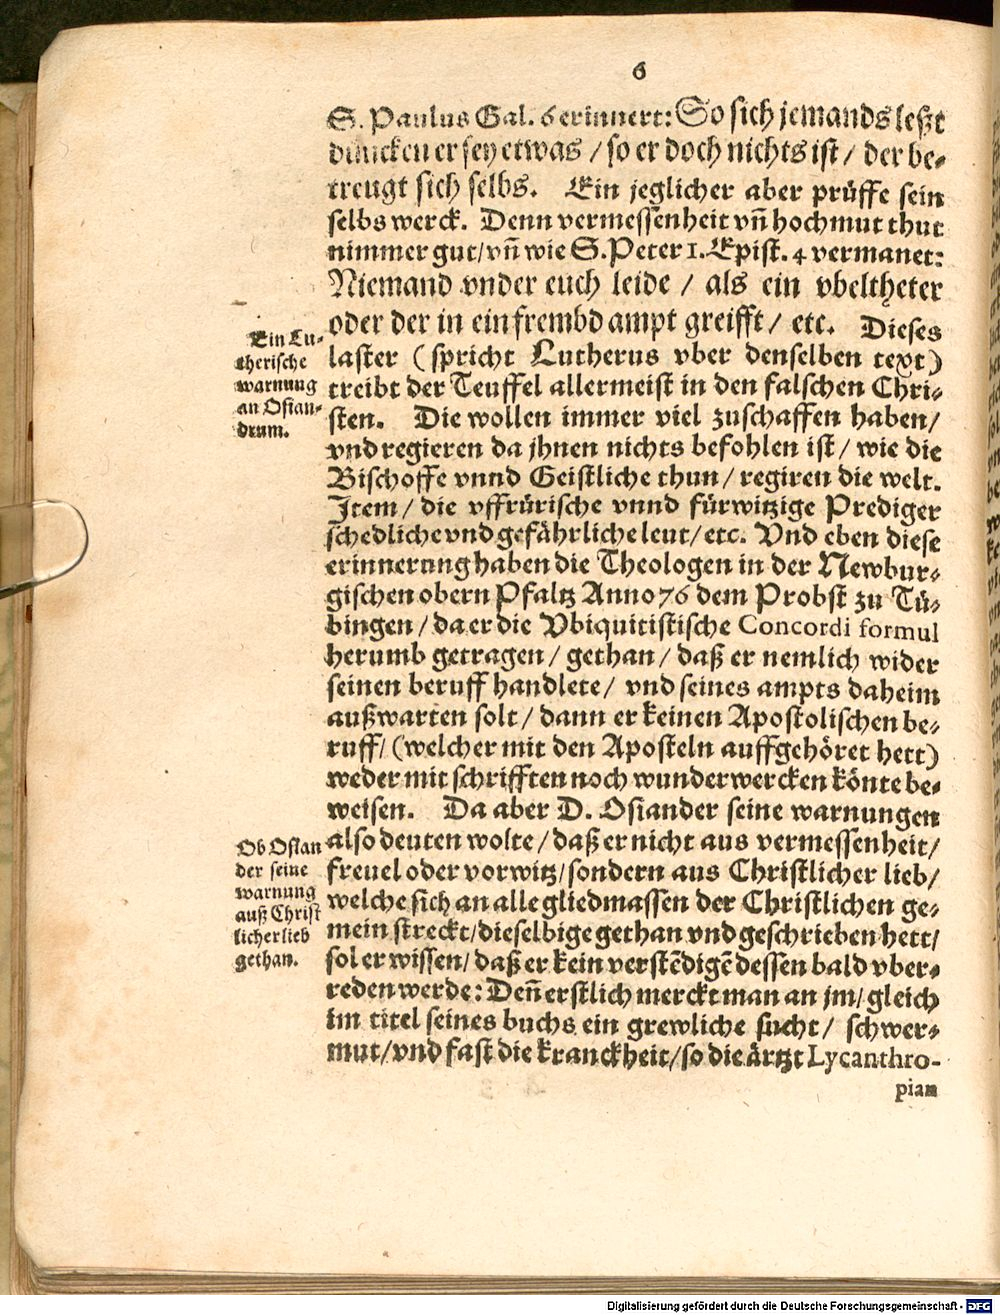 6
S. Paulus Gal. 6 erinnert: So sich jemands leßt
düncken er sey etwas / so er doch nichts ist / der be-
treugt sich selbs. Ein jeglicher aber prüffe sein
selbs werck. Denn vermessenheit vñ hochmut thut
nimmer gut / vñ wie S. Peter 1. Epist. 4 vermanet:
Niemand vnder euch leide / als ein vbeltheter
oder der in ein frembd ampt greifft / etc. Dieses
laster (spricht Lutherus vber denselben text)
treibt der Teuffel allermeist in den falschen Chri-
sten. Die wollen immer viel zuschaffen haben /
vnd regieren da jhnen nichts befohlen ist / wie die
Bischoffe vnnd Geistliche thun / regiren die welt.
Item / die vffrürische vnnd fürwitzige Prediger
schedliche vnd gefährliche leut / etc. Vnd eben diese
erinnerung haben die Theologen in der Newbur-
gischen obern Pfaltz Anno 76 dem Probst zu Tü-
bingen / da er die Vbiquitistische Concordi formul
herumb getragen / gethan / daß er nemlich wider
seinen beruff handlete / vnd seines ampts daheim
außwarten solt / dann er keinen Apostolischen be-
ruff / (welcher mit den Aposteln auffgehöret hett)
weder mit schrifften noch wunderwercken könte be-
weisen. Da aber D. Osiander seine warnungen
also deuten wolte / daß er nicht aus vermessenheit /
freuel oder vorwitz / sondern aus Christlicher lieb /
welche sich an alle gliedmassen der Christlichen ge-
mein streckt / dieselbige gethan vnd geschrieben hett /
sol er wissen / daß er kein verstēdigē dessen bald vber-
reden werde: Deñ erstlich merckt man an jm / gleich
im titel seines buchs ein grewliche sucht / schwer-
mut / vnd fast die kranckheit / so die ärtzt Lycanthro-
pian
Ein Lu-
therische
warnung
an Osian-
drum.
Ob Osian
der seine
warnung
auß Christ
licher lieb
gethan.
Digitalisierung gefördert durch die Deutsche Forschungsgemeinschaft - DFG